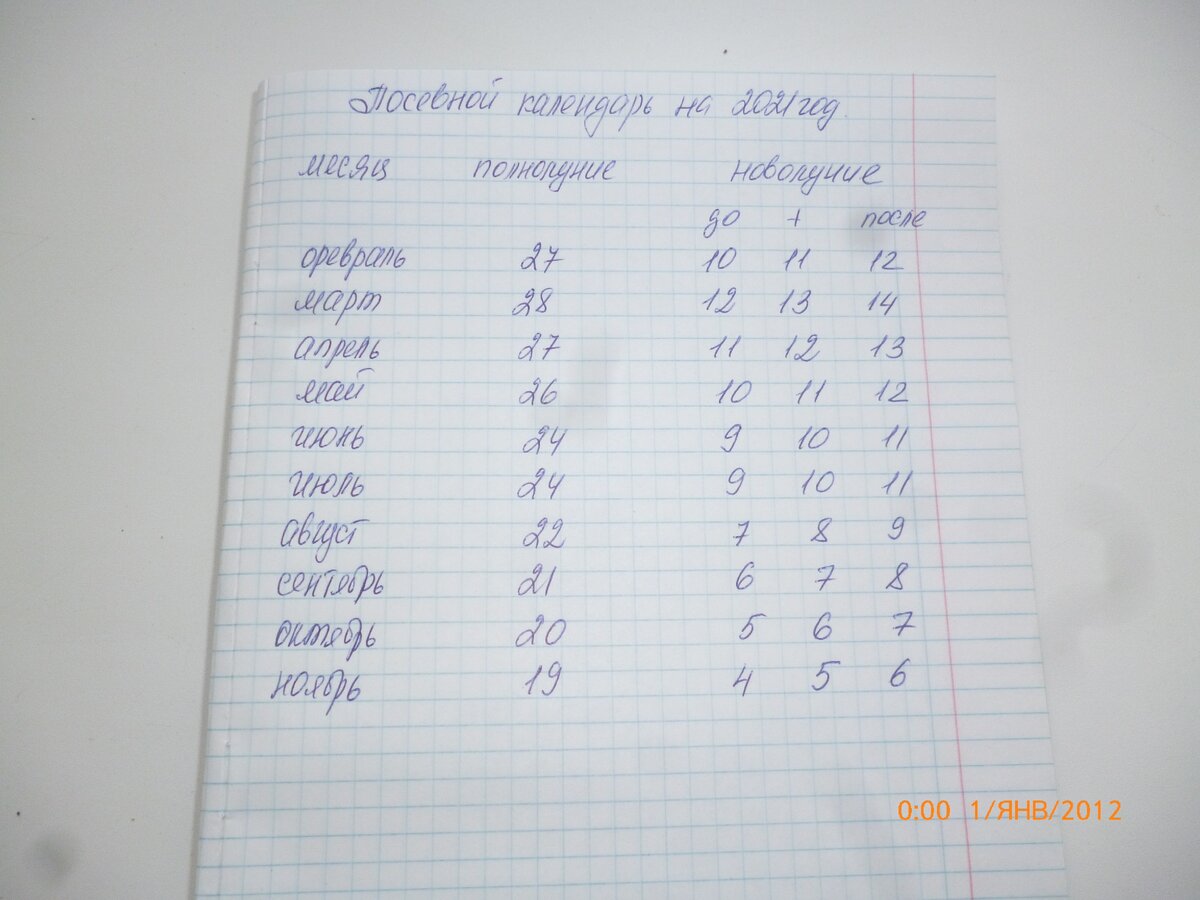 Посевной календарь на 2021 год.
месяц полнолуние новолуние
до + после
февраль 27 10 11 12
март 28 12 13 14
апрель 27 11 12 13
май 26 10 11 12
июнь 24 9 10 11
июль 24 9 10 11
август 22 7 8 9
сентябрь 21 6 7 8
октябрь 20 5 6 7
ноябрь 19 4 5 6
0:00 1/ЯНВ/2012